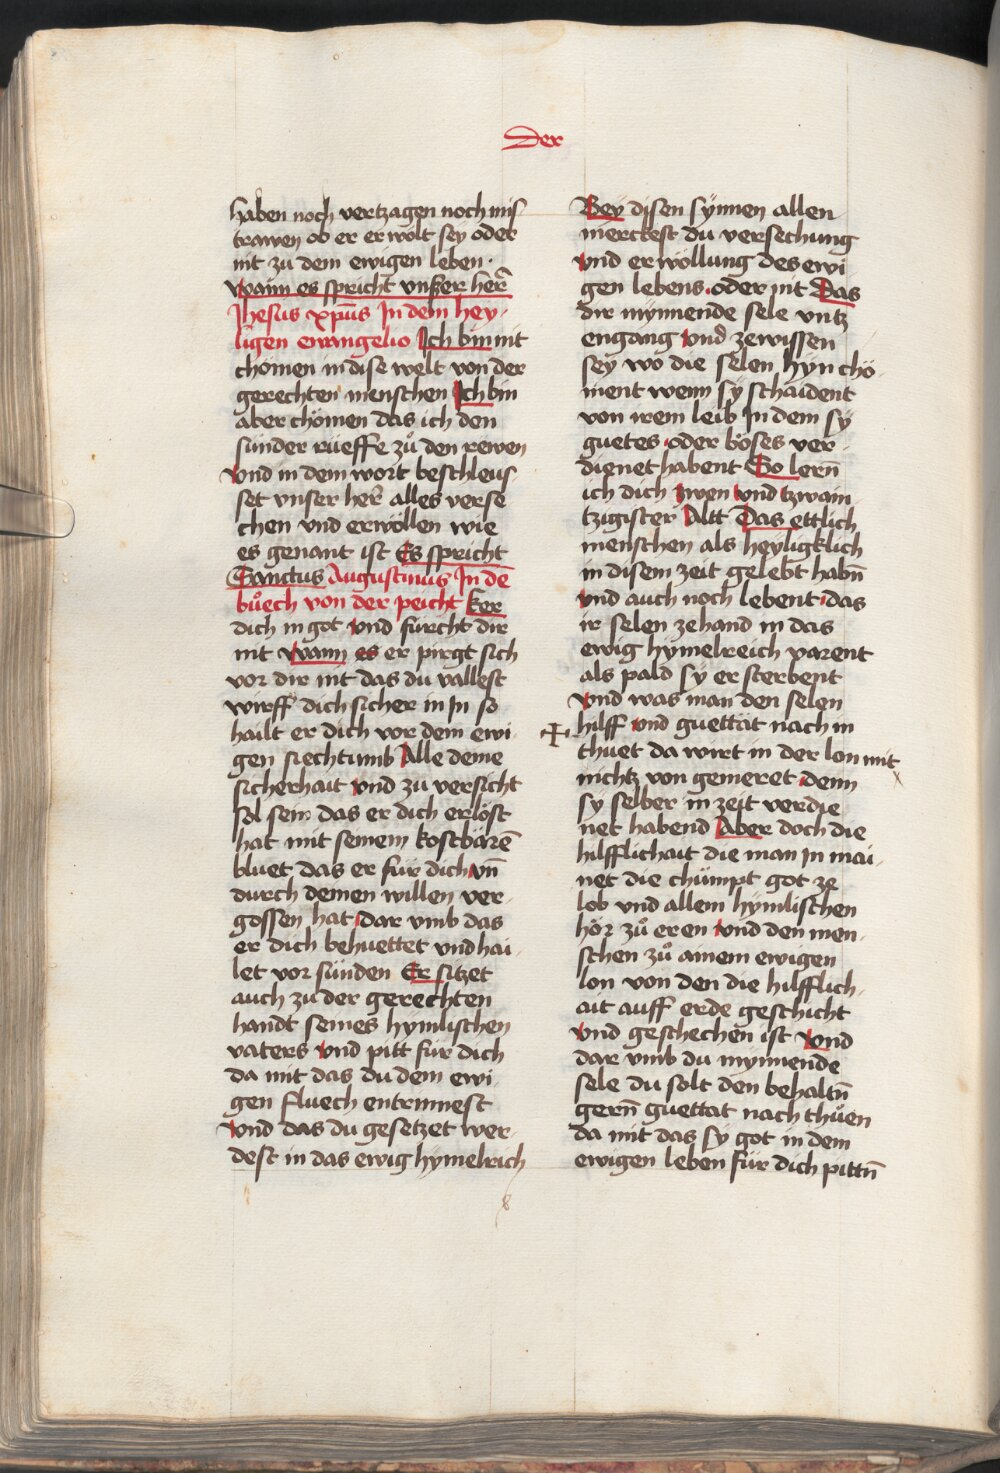 Der
haben noch vertzagen noch mis
trawen ob er erwölt sey oder
nit zu dem ewigen leben ·
Wann es spricht vnser herr
Jhesus xp̄us In dem hey-
ligen ewangelio Ich bin nit
chömen in dise welt von der
gerechten menschen Ich bin
aber chömen das ich den
sünder rüeffe zů den rewen
Vnd in dem wort beschleus-
set vnser her alles verse
chen vnd erwöllen wie
es genant ist Es spricht
Sanctus Augustinus In dē
bůech von der peicht Ker
dich in got Vnd fürcht dir
nit Wann es er pirgt sich
vor dir nit das du vallest
wirff dich sicher in In so
hailt er dich vor dem ewi-
gen siechtumb Alle deine
sicherhait Vnd zu versicht
sol sein das er dich erlöst
hat mit seinem kostbärē
bluet das er für dich vn̄
durch deinen willen ver-
gossen hat dar vmb das
er dich behuettet vnd hai-
let vor sünden Er sitzet
auch zu der gerechten
handt seines hymlischen
vaters Vnd pitt für dich
da mit das du dem ewi-
gen fluech entrinnest
Vnd das du gesetzet wer-
dest in das ewig hymelrich
Bey disen synnen allen
merckest du versechung
Vnd erwöllung des ewi
gen lebens oder nit Das
dir mynnende sele vntz
engang Vnd zewissen
sey wo die selen hyn chö-
ment wenn sy schaident
von irem leib In dem sy
guetes oder böses ver-
dienet habent So lern̄
ich dich zwen Vnd tzwain
tzigister Altt Das ettlich
menschen als heyligklich
in disem zeit gelebt habn̄
Vnd auch noch lebent das
ir selen zehand in das
ewig hymelreich varent
als pald sy ersterbent
Vnd was man den selen
hilff Vnd guettät nach in
thuet da wirt in der lon mit
nichtz von gemeret denn
sy selber in zeit verdie
net habend Aber doch die
hilfflichait die man In mai-
net die chümpt got ze
lob vnd allem hymlischen
hör zů eren Vnd den men-
schen zů ainem ewigen
lon von den die hilfflich-
ait auff erde geschicht
Vnd geschechen ist Vnd
dar vmb du mynnende
sele du solt den behaltn̄
gern̄ guettat nach thůen
da mit das sy got in dem
ewigen leben für dich pittn̄